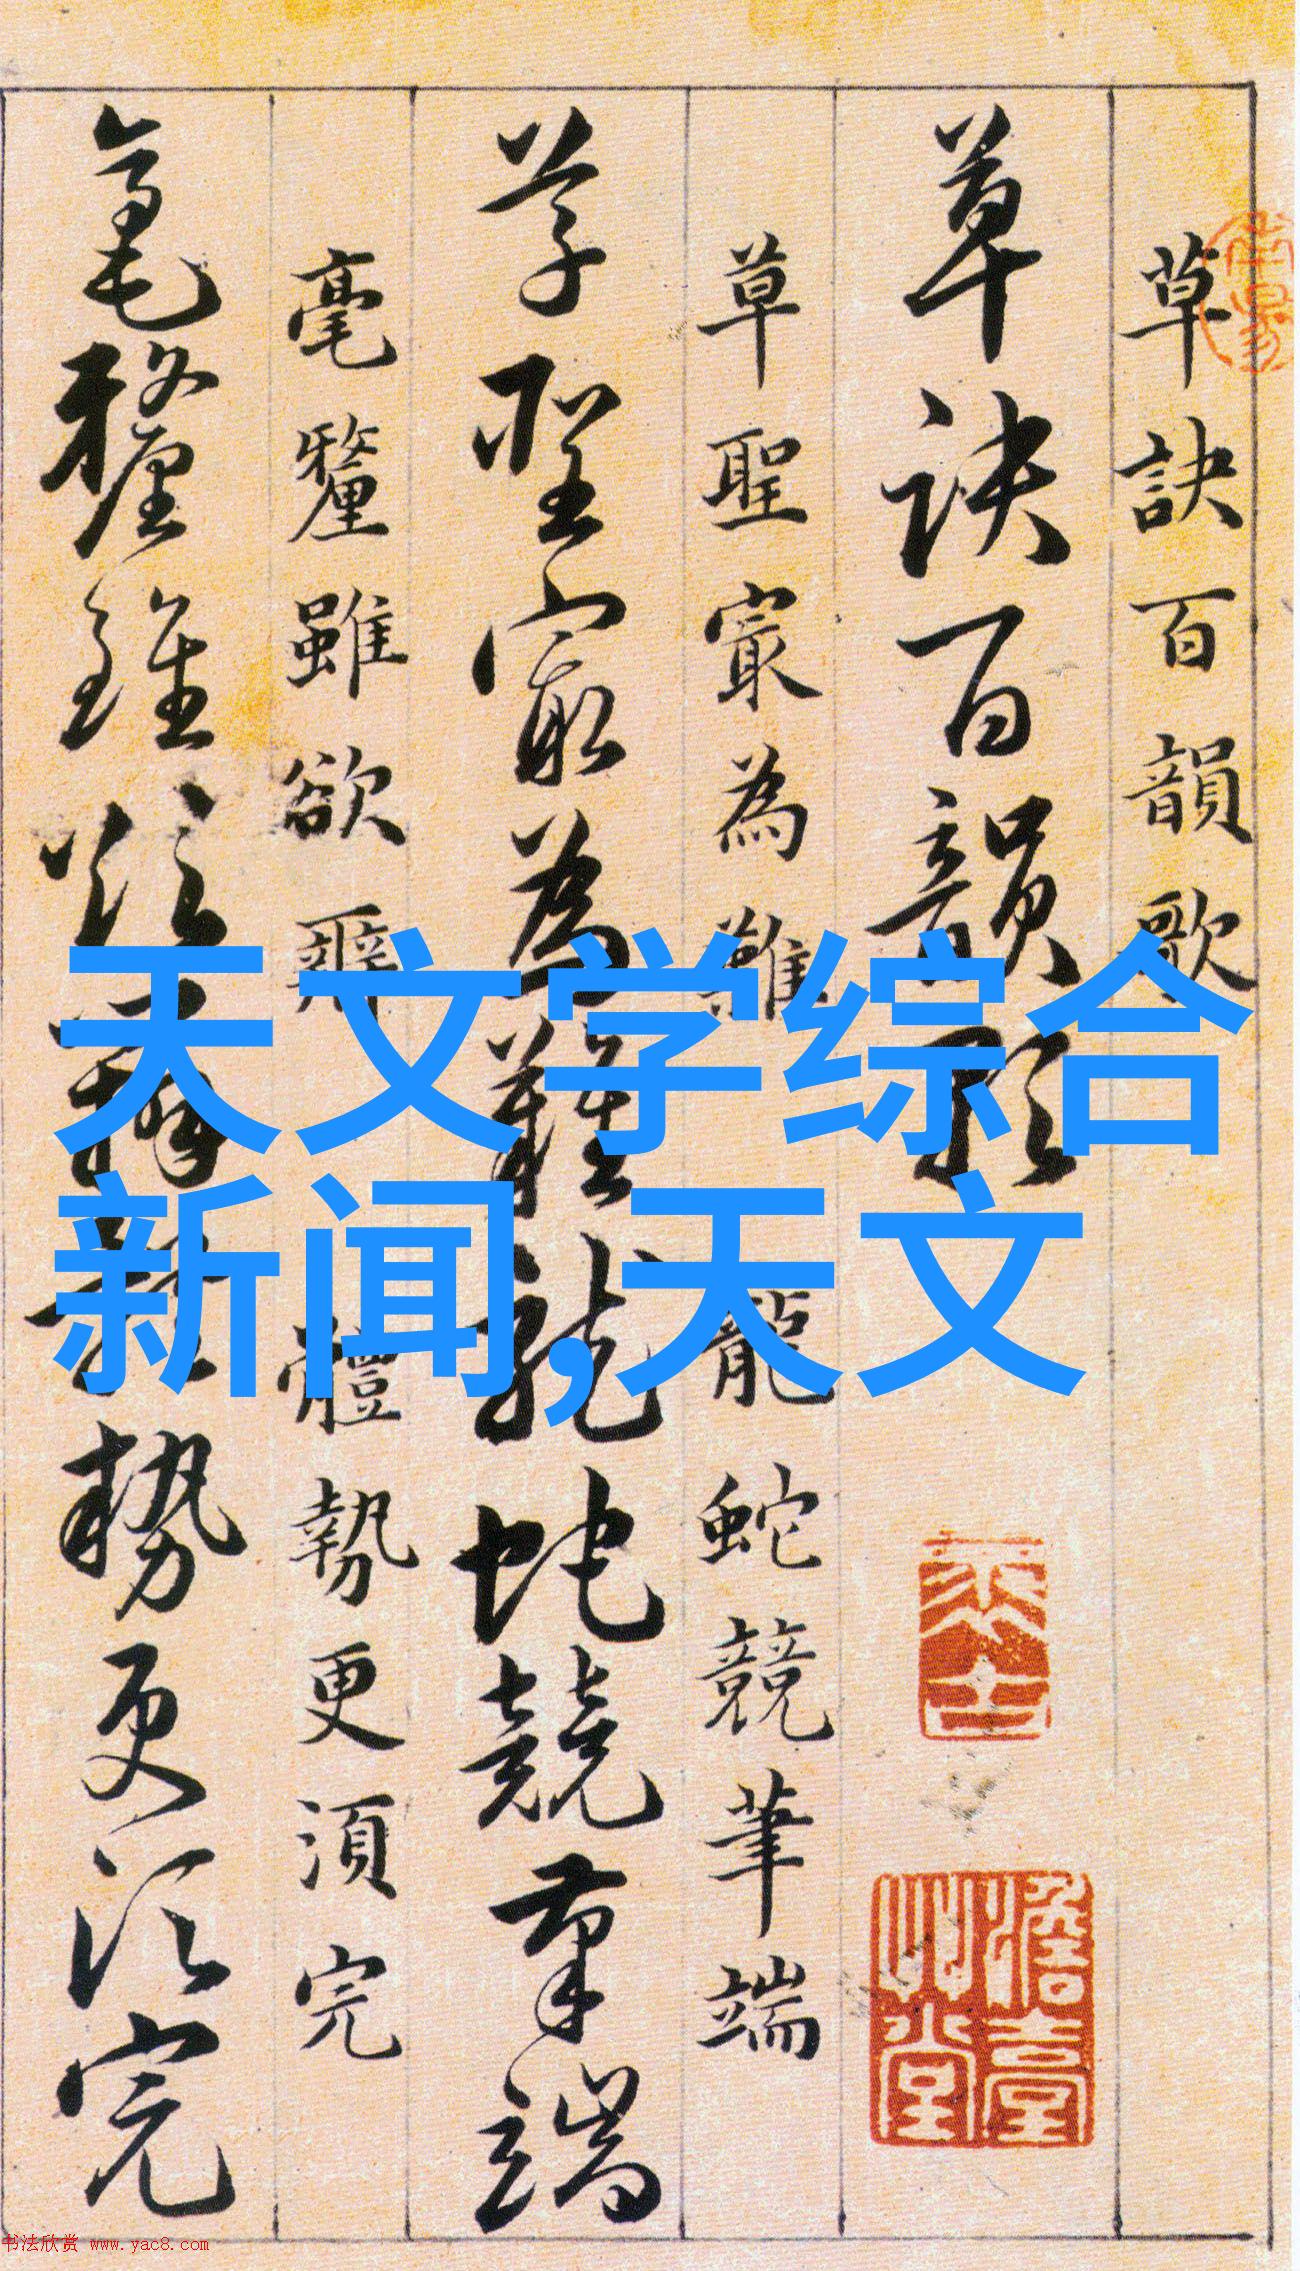 草訣百韻歌
草訣百韻歌
草聖㝡為難龍蛇競筆端
草聖㝡為難龍蛇競筆端
毫釐雖欲辨體勢更須完
毫釐雖欲辨體勢更須完
天文学综合
新闻,天文
书法欣赏 www.yac8.com